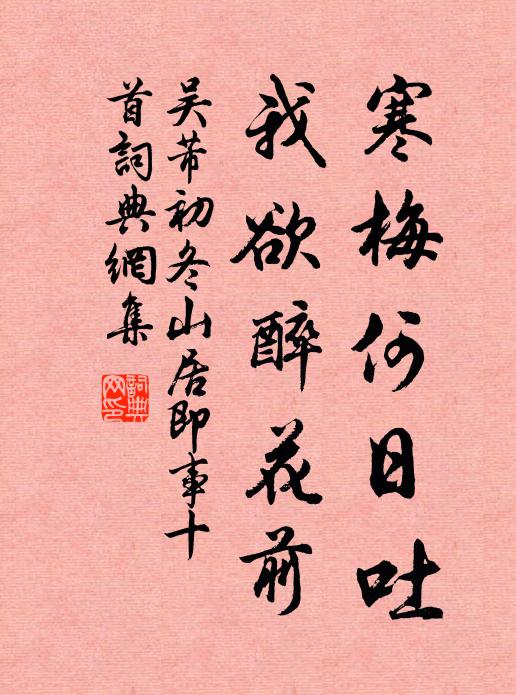 寒梅何日吐
我欲醉花前
吳芾初冬山居即事十
首詞典網集
詞典
网印